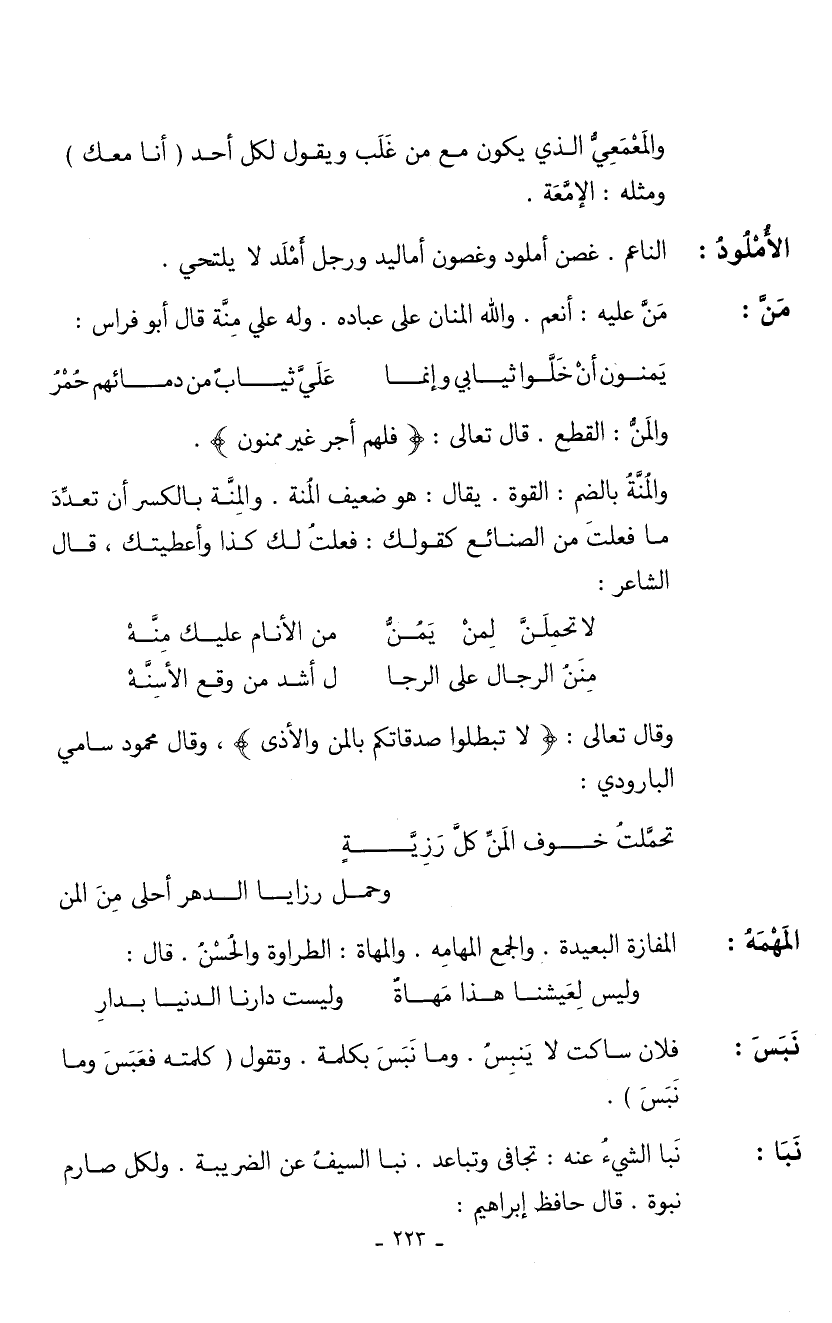 والمَعْمَعِيُّ الذي يكون مع من غَلَب ويقول لكل أحد ( أنا معك )
ومثله : الإمَّعَة .
الأُمْلُودُ : الناعم . غصن أملود وغصون أماليد ورجل أَمْلَد لا يلتحي .
مَنَّ : مَنَّ عليه : أنعم . والله المنان على عباده . وله علي مِنَّة قال أبو فراس :
يَمنون أنْ خَلَّوا ثيابي وإنما عَلَيَّ ثيابٌ من دمائهم حُمْرُ
والمَنُّ : القطع . قال تعالى : ﴿ فلهم أجر غير ممنون ﴾ .
والمُنَّةُ بالضم : القوة . يقال : هو ضعيف المُنة . والمِنَّة بالكسر أن تعدِّدَ
ما فعلتَ من الصنائع كقولك : فعلتُ لك كذا وأعطيتك ، قال
الشاعر :
لا تحمِلَنَّ لِمنْ يَمُنُّ من الأنام عليك مِنَّهْ
مِنَنُ الرجال على الرجا ل أشد من وقع الأسِنَّهْ
وقال تعالى : ﴿ لا تبطلوا صدقاتكم بالمن والأذى ﴾ ، وقال محمود سامي
البارودي :
تحمَّلتُ خوف المَنِّ كلَّ رَزِيَّةٍ
وحمل رزايا الدهر أحلى مِنَ المن
المَهْمَهُ : المفازة البعيدة . والجمع المهامه . والمهاة : الطراوة والحُسْنُ . قال :
وليس لِعَيشنا هذا مَهاةٌ وليست دارنا الدنيا بدارِ
نَبَسَ : فلان ساكت لا يَنبِسُ . وما نَبَسَ بكلمة . وتقول ( كلمته فعَبَسَ وما
نَبَسَ ) .
نَبَا : نَبا الشيءُ عنه : تجافى وتباعد . نبا السيفُ عن الضريبة . ولكل صارم
نبوة . قال حافظ إبراهيم :
- ٢٢٣ -